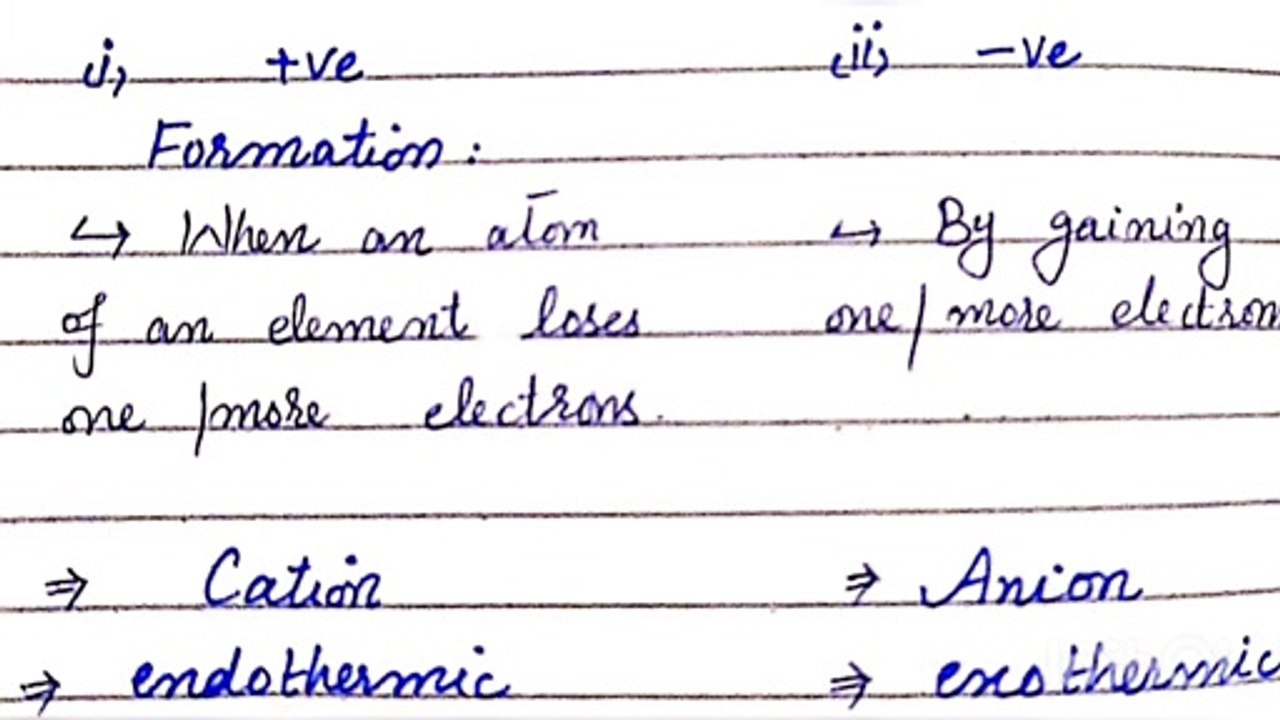 i, +ve (ii) -ve
Formation:
↪ When an atom ↪ By gaining
of an element loses one/more electron
one /more electrons.
⇒ Cation ⇒ Anion
⇒ endothermic ⇒ exothermic